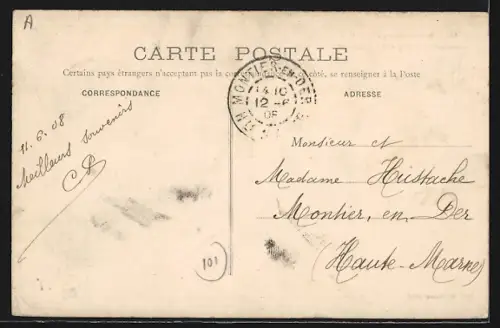 A
CARTE POSTALE
Certains pays étrangers n'acceptant pas la correspondance de ce côté, se renseigner à la Poste
CORRESPONDANCE
ADRESSE
MONTIER-EN-DER
14 10
12 - 6
08
11. 6. 08
Meilleurs souvenirs
Monsieur et
Madame Hustache
Montier, en, Der
(Haute-Marne)
101